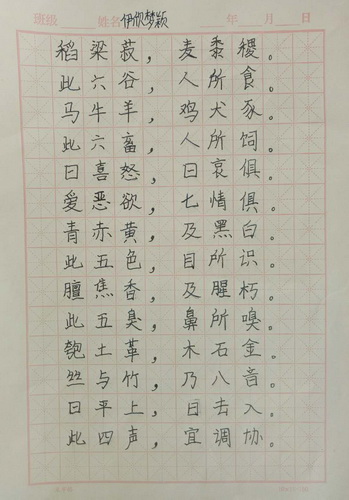 班级 姓名 伊依梦颖 年 月 日
稻粱菽，麦黍稷。
此六谷，人所食。
马牛羊，鸡犬豕。
此六畜，人所饲。
曰喜怒，曰哀惧。
爱恶欲，七情俱。
青赤黄，及黑白。
此五色，目所识。
膻焦香，及腥朽。
此五臭，鼻所嗅。
匏土革，木石金。
丝与竹，乃八音。
曰平上，曰去入。
此四声，宜调协。